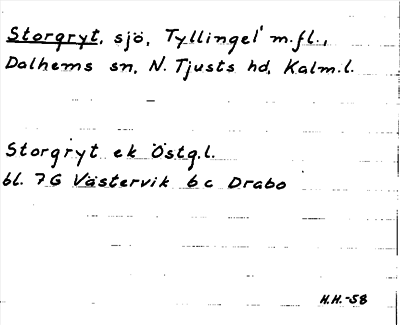 Storgryt, sjö, Tyllinge m.fl.,
Dalhems sn, N. Tjusts hd, Kalm.l.
Storgryt ek Östg.l.
bl. 7G Västervik 6 c Drabo
H.H.-58